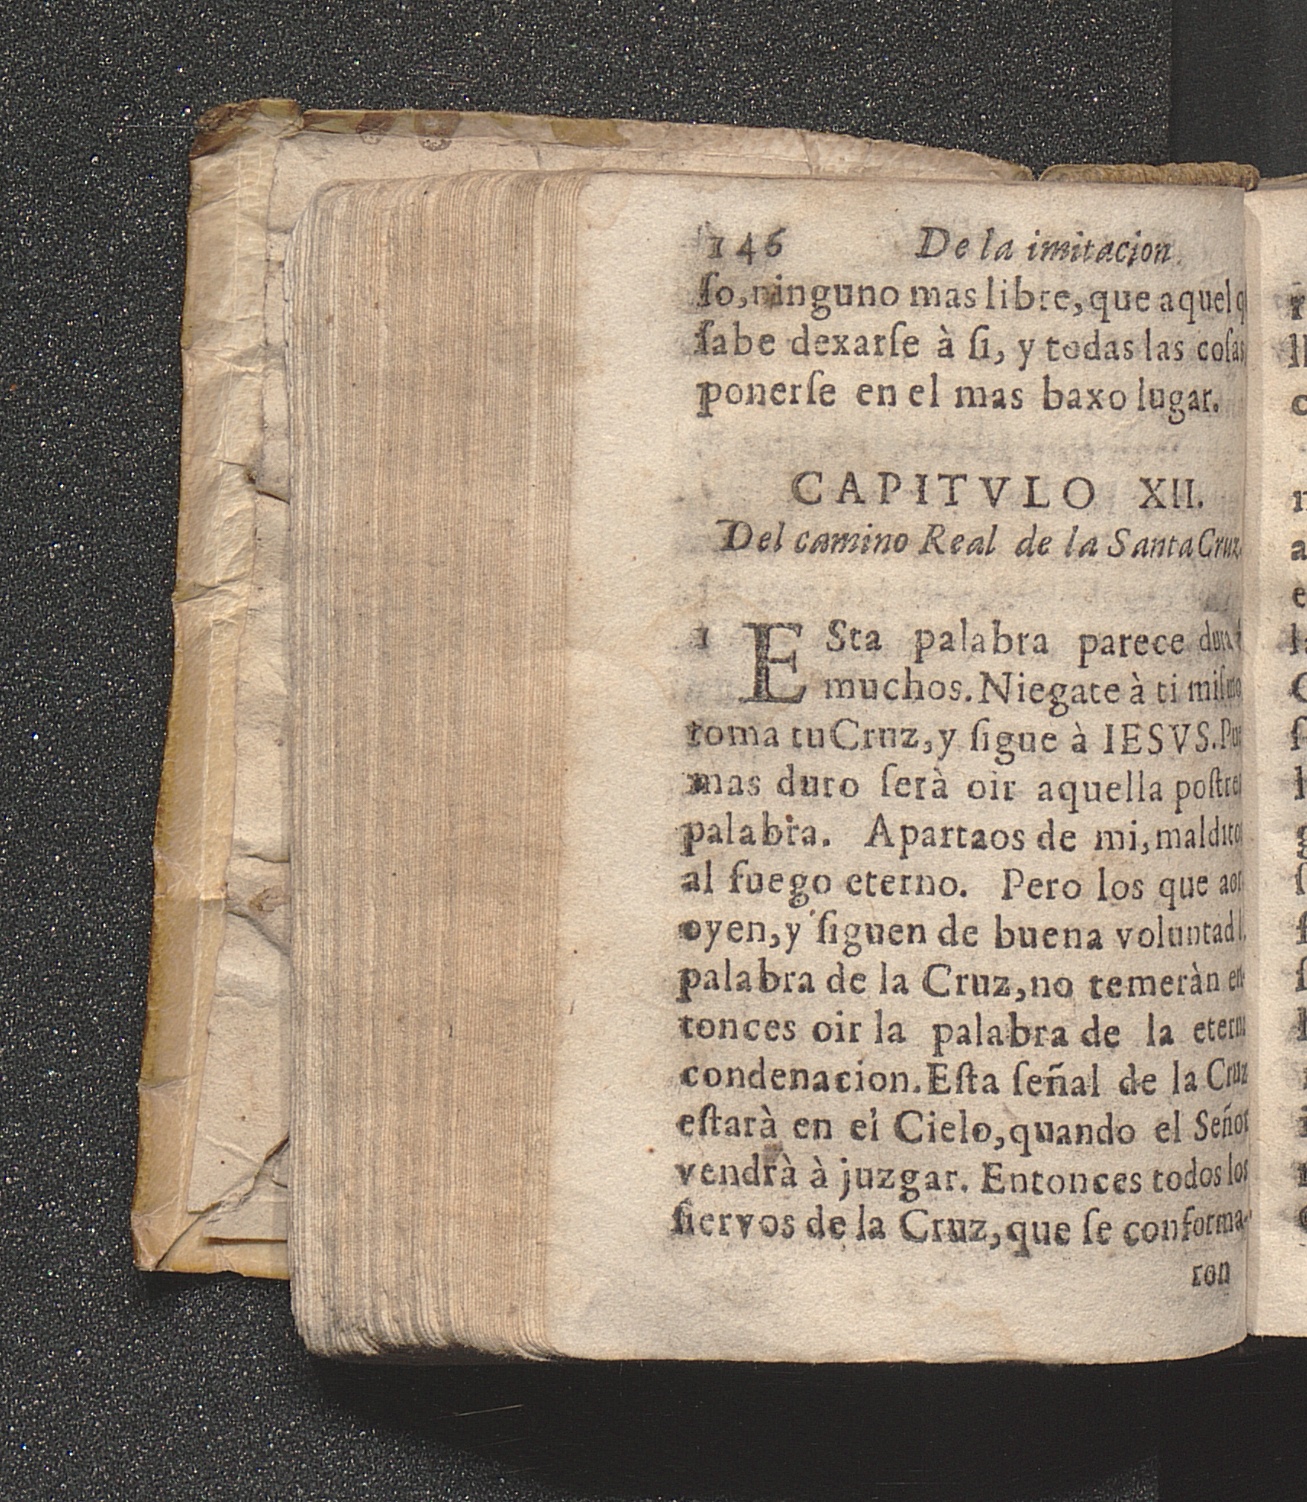 146 De la imitacion
ſo, ninguno mas libre, que aquel q
ſabe dexarſe à ſi, y todas las coſas
ponerſe en el mas baxo lugar.
CAPITVLO XII.
Del camino Real de la Santa Cruz.
1 ESta palabra parece dura à
muchos. Niegate à ti miſmo
toma tu Cruz, y ſigue à IESVS. Pues
mas duro ſerà oir aquella poſtrer
palabra. Apartaos de mi, malditos
al fuego eterno. Pero los que aor
oyen, y ſiguen de buena voluntad l
palabra de la Cruz, no temeràn en-
tonces oir la palabra de la eterna
condenacion. Eſta ſeñal de la Cruz
eſtarà en el Cielo, quando el Señor
vendrà à juzgar. Entonces todos los
ſiervos de la Cruz, que ſe conforma-
ron